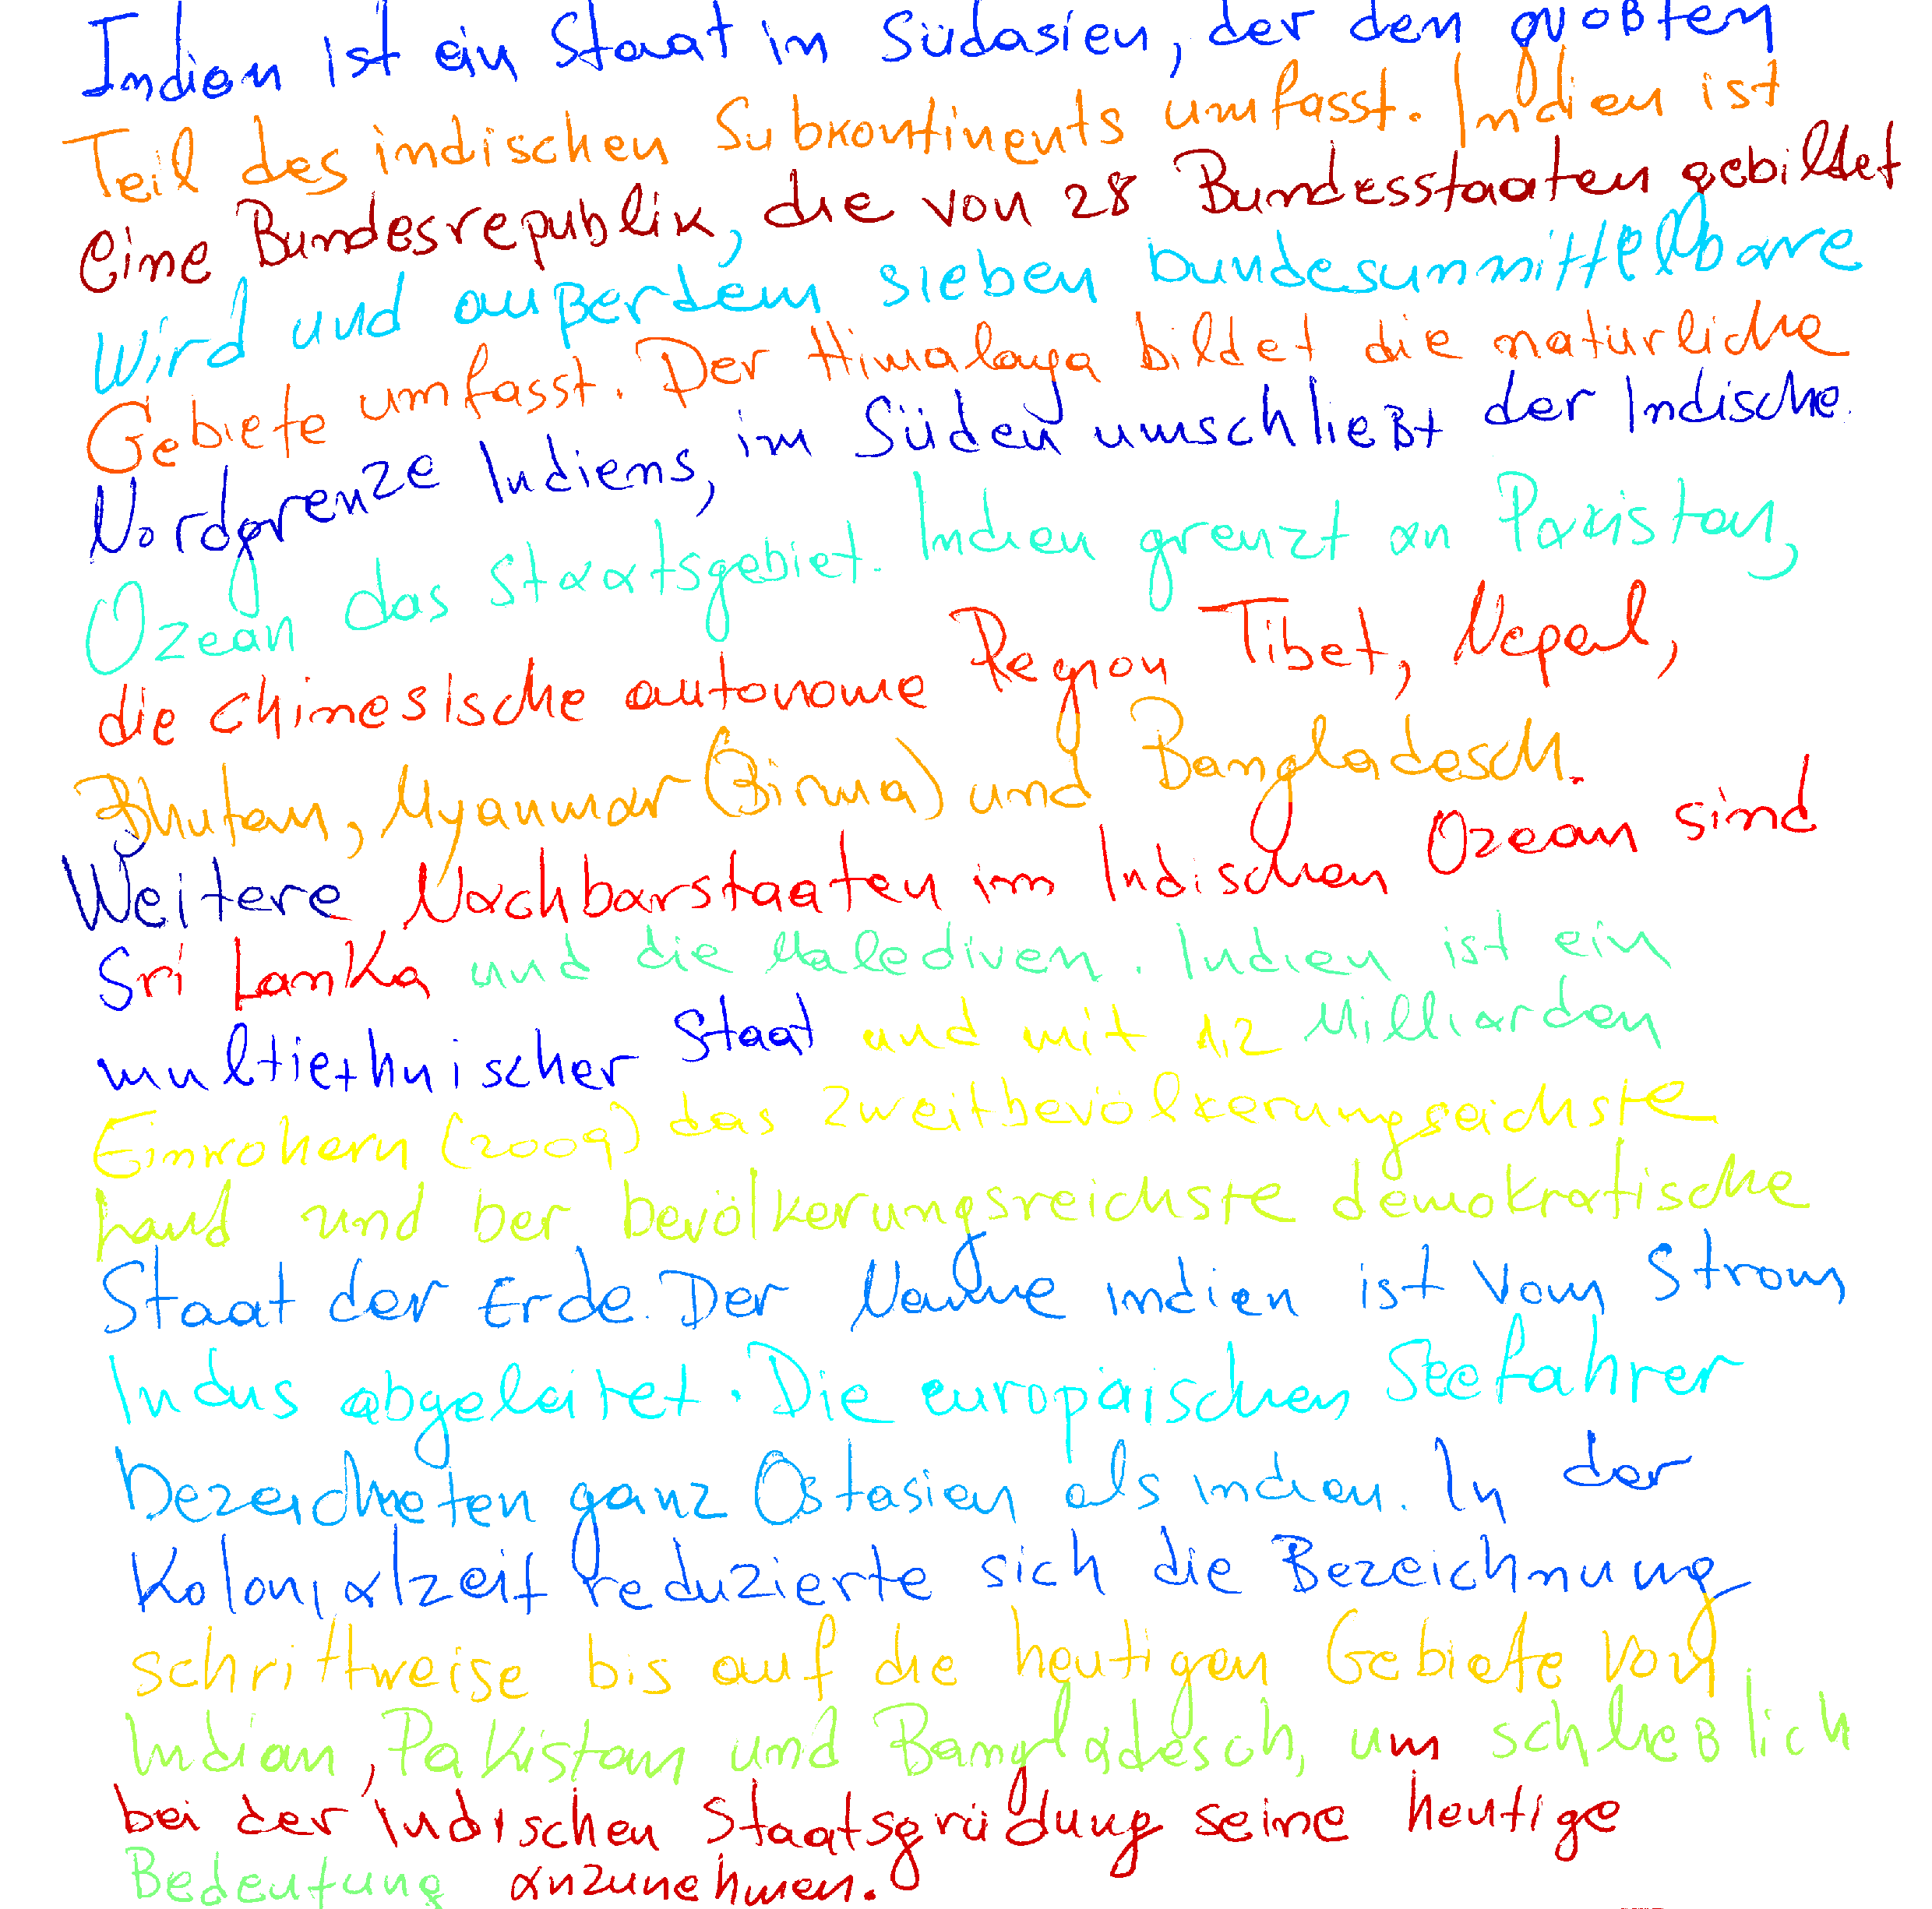 Indien ist ein Staat in Südasien, der den größten
Teil des indischen Subkontinents umfasst. Indien ist
eine Bundesrepublik, die von 28 Bundesstaaten gebildet
wird und außerdem sieben bundesunmittelbare
Gebiete umfasst. Der Himalaya bildet die natürliche
Nordgrenze Indiens, im Süden umschließt der Indische
Ozean das Staatsgebiet. Indien grenzt an Pakistan,
die chinesische autonome Region Tibet, Nepal,
Bhutan, Myanmar (Birma) und Bangladesch.
Weitere Nachbarstaaten im Indischen Ozean sind
Sri Lanka und die Malediven. Indien ist ein
multiethnischer Staat und mit 1,2 Milliarden
Einwohern (2009) das zweitbevölkerungseichste
Land und ber bevölkerungsreichste demokratische
Staat der Erde. Der Name Indien ist vom Strom
Indus abgeleitet. Die europäischen Seefahrer
bezeichneten ganz Ostasien als Indien. In der
Kolonialzeit reduzierte sich die Bezeichnung
schrittweise bis auf die heutigen Gebiete von
Indian, Pakistan und Bangladesch, um schließlich
bei der indischen Staatsgrüdung seine heutige
Bedeutung anzunehmen.